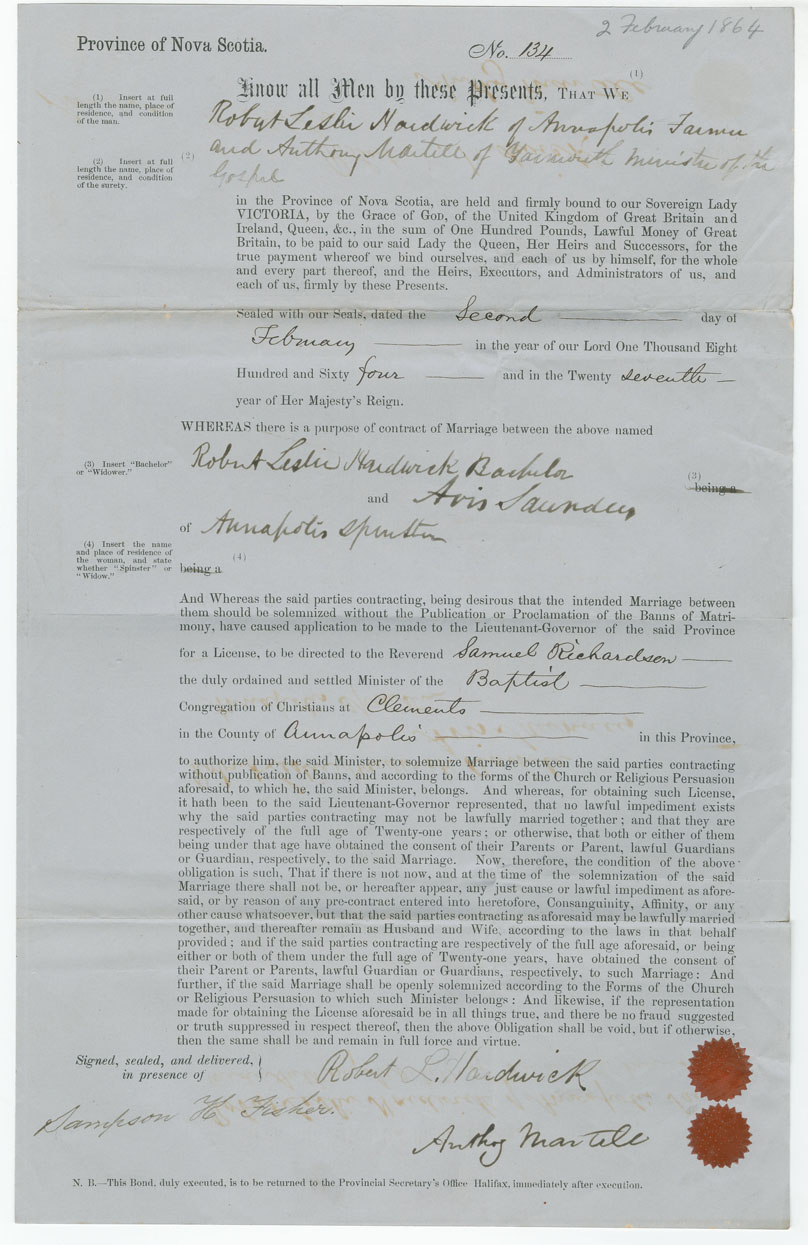 2 February 1864
Province of Nova Scotia.
No. 134
(1) Insert at full
length the name, place of
residence, and condition
of the man.
Know all Men by these Presents, THAT WE (1)
Robert Leslie Hardwick of Annapolis Farmer
(2) Insert at full
length the name, place of
residence, and condition
of the surety.
(2) and Anthony Martell of Yarmouth Minister of the
Gospel
in the Province of Nova Scotia, are held and firmly bound to our Sovereign Lady
VICTORIA, by the Grace of GOD, of the United Kingdom of Great Britain and
Ireland, Queen, &c., in the sum of One Hundred Pounds, Lawful Money of Great
Britain, to be paid to our said Lady the Queen, Her Heirs and Successors, for the
true payment whereof we bind ourselves, and each of us by himself, for the whole
and every part thereof, and the Heirs, Executors, and Administrators of us, and
each of us, firmly by these Presents.
Sealed with our Seals, dated the Second day of
February in the year of our Lord One Thousand Eight
Hundred and Sixty four and in the Twenty seventh
year of Her Majesty's Reign.
WHEREAS there is a purpose of contract of Marriage between the above named
(3) Insert "Bachelor"
or "Widower."
Robert Leslie Hardwick Bachelor (3) being a
and Avis Saunders
of Annapolis Spinster
(4) Insert the name
and place of residence of
the woman, and state
whether "Spinster" or
"Widow."
being a (4)
And Whereas the said parties contracting, being desirous that the intended Marriage between
them should be solemnized without the Publication or Proclamation of the Banns of Matri-
mony, have caused application to be made to the Lieutenant-Governor of the said Province
for a License, to be directed to the Reverend Samuel Richardson
the duly ordained and settled Minister of the Baptist
Congregation of Christians at Clements
in the County of Annapolis in this Province,
to authorize him, the said Minister, to solemnize Marriage between the said parties contracting
without publication of Banns, and according to the forms of the Church or Religious Persuasion
aforesaid, to which he, the said Minister, belongs. And whereas, for obtaining such License,
it hath been to the said Lieutenant-Governor represented, that no lawful impediment exists
why the said parties contracting may not be lawfully married together; and that they are
respectively of the full age of Twenty-one years; or otherwise, that both or either of them
being under that age have obtained the consent of their Parents or Parent, lawful Guardians
or Guardian, respectively, to the said Marriage. Now, therefore, the condition of the above
obligation is such, That if there is not now, and at the time of the solemnization of the said
Marriage there shall not be, or hereafter appear, any just cause or lawful impediment as afore-
said, or by reason of any pre-contract entered into heretofore, Consanguinity, Affinity, or any
other cause whatsoever, but that the said parties contracting as aforesaid may be lawfully married
together, and thereafter remain as Husband and Wife, according to the laws in that behalf
provided; and if the said parties contracting are respectively of the full age aforesaid, or being
either or both of them under the full age of Twenty-one years, have obtained the consent of
their Parent or Parents, lawful Guardian or Guardians, respectively, to such Marriage: And
further, if the said Marriage shall be openly solemnized according to the Forms of the Church
or Religious Persuasion to which such Minister belongs: And likewise, if the representation
made for obtaining the License aforesaid be in all things true, and there be no fraud suggested
or truth suppressed in respect thereof, then the above Obligation shall be void, but if otherwise,
then the same shall be and remain in full force and virtue.
Signed, sealed, and delivered,
in presence of
Robert L. Hardwick
Sampson H. Fisher.
Anthoy Martell
N. B.—This Bond, duly executed, is to be returned to the Provincial Secretary's Office Halifax, immediately after execution.